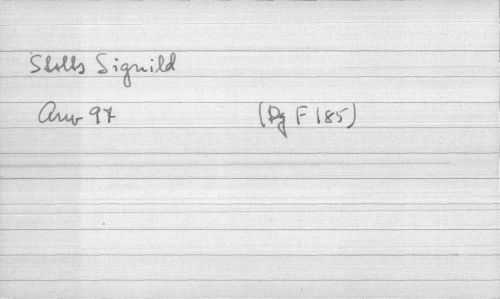 Stolts Signild
Arw 97 (Dg F 185)